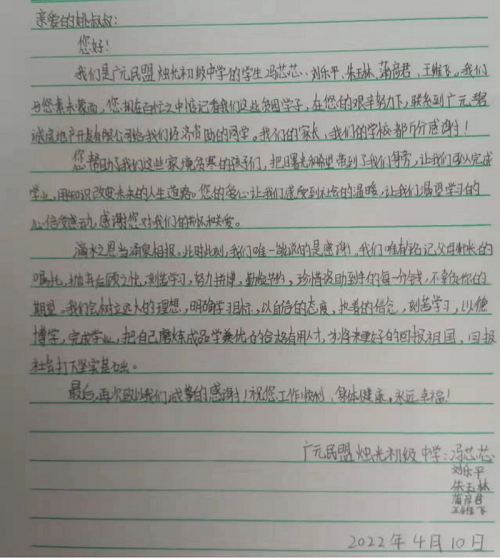 亲爱的姚叔叔:
您好!
我们是广元民盟烛光初级中学的学生冯芯芯、刘乐平、朱玉林、蒲彦君、王維飞。我们
与您素未蒙面,您却在百忙之中惦记着我们这些贫困学子,在您的艰辛努力下,联系到广元
房地产开发有限公司给我们经济资助的同学。我们的家长,我们的学校都十分感谢!
您帮助了我们这些家境贫寒的孩子们,把曙光和希望带到了我们身旁,让我们可以完成
学业,用知识改变未来的人生道路。您的爱心让我们感受到未给的温暖,让我们渴望学习的
心倍受感动,感谢您对我们的和关爱。
滴水之恩当涌泉相报。此时此刻,我们唯一能说的是感谢,我们唯有铭记父母和长的
嘱托,抛弃后顾之忧,刻苦学习,努力拼搏,勤俭节约,珍惜资助到手的每一分钱,不辜负你的
期望,我们会树立远大的理想,明确学习目标,以自信的态度、执着的信念,刻苦学习,以便
博学,完成学业,把自己磨炼成品学兼优的合格有用人才,为将来更好的回报祖国,回报
社会打下坚实基础。
最后,再次致以我们诚挚的感谢!祝您工作顺利、身体健康,永远幸福!
广元民盟烛光初级中学:冯芯芯
刘乐平
朱玉林
蒲彦君
王維飞
2022年4月10日